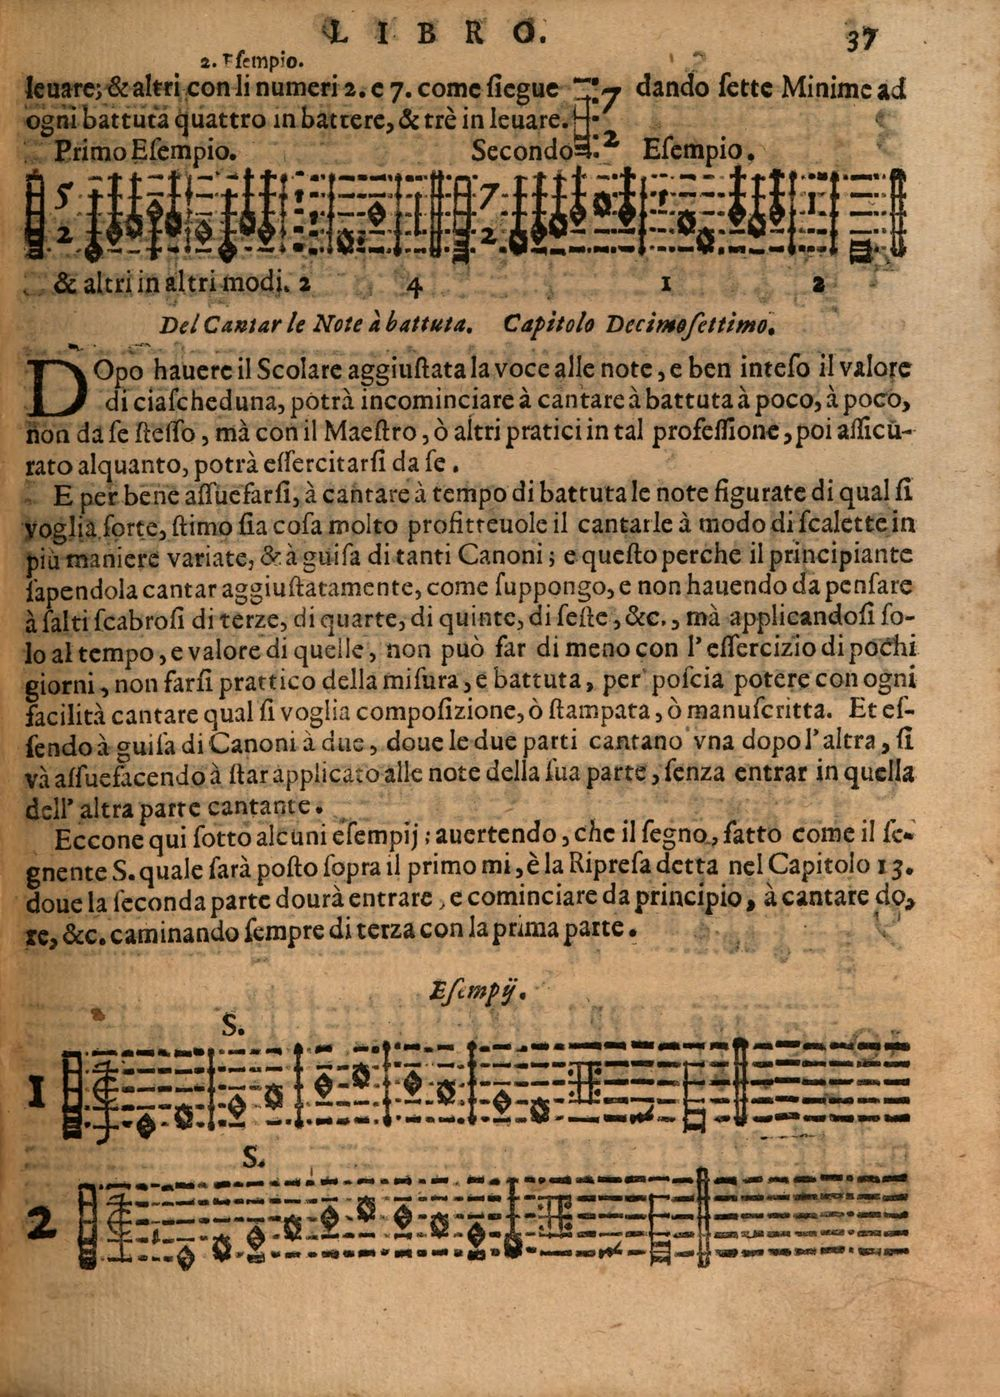 LIBRO. 37
2. Esempio.
leuare; & altri con li numeri 2. e 7. come siegue 7 2 dando sette Minime ad
ogni battuta quattro in battere, & trè in leuare.
Primo Esempio. Secondo Esempio.
5 2 7 2
& altri in altri modi. 2 4 1 2
Del Cantar le Note à battuta. Capitolo Decimosettimo.
DOpo hauere il Scolare aggiustata la voce alle note, e ben inteso il valore
di ciascheduna, potrà incominciare à cantare à battuta à poco, à poco,
non da se stesso, mà con il Maestro, ò altri pratici in tal professione, poi assicu-
rato alquanto, potrà essercitarsi da se.
E per bene assuefarsi, à cantare à tempo di battuta le note figurate di qual si
voglia sorte, stimo sia cosa molto profitteuole il cantarle à modo di scalette in
più maniere variate, & à guisa di tanti Canoni; e questo perche il principiante
sapendola cantar aggiustatamente, come suppongo, e non hauendo da pensare
à salti scabrosi di terze, di quarte, di quinte, di seste, &c., mà applicandosi so-
lo al tempo, e valore di quelle, non può far di meno con l' essercizio di pochi
giorni, non farsi prattico della misura, e battuta, per poscia potere con ogni
facilità cantare qual si voglia composizione, ò stampata, ò manuscritta. Et es-
sendo à guisa di Canoni à due, doue le due parti cantano vna dopo l' altra, si
và assuefacendo à star applicato alle note della sua parte, senza entrar in quella
dell' altra parte cantante.
Eccone qui sotto alcuni esempij; auertendo, che il segno, fatto come il se-
gnente S. quale sarà posto sopra il primo mi, è la Ripresa detta nel Capitolo 13.
doue la seconda parte dourà entrare, e cominciare da principio, à cantare do,
re, &c. caminando sempre di terza con la prima parte.
Esempij.
S.
1
S.
2